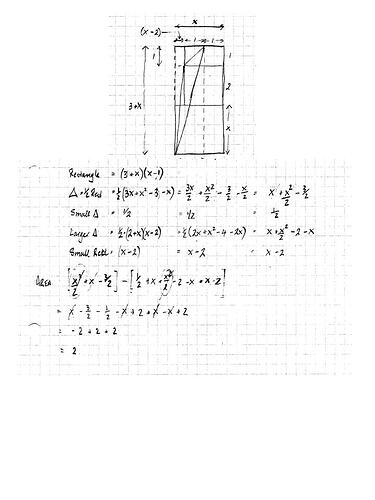 x
(x-2) 1 1
1 1
2
3+x
x
Rectangle = (3+x)(x-1)
Δ = ½ Rect = ½(3x+x²-3-x) = 3x/2 + x²/2 - 3/2 - x/2 = x + x²/2 - 3/2
Small Δ = ½ = ½ = ½
Larger Δ = ½·(2+x)(x-2) = ½(2x+x²-4-2x) = x+x²/2-2-x
Small Rect = (x-2) = x-2 = x-2
AREA [x²/2 + x - 3/2] - [½ + x + x²/2 - 2 - x + x - 2]
= x - 3/2 - ½ - x + 2 + x - x + 2
= -2 + 2 + 2
= 2